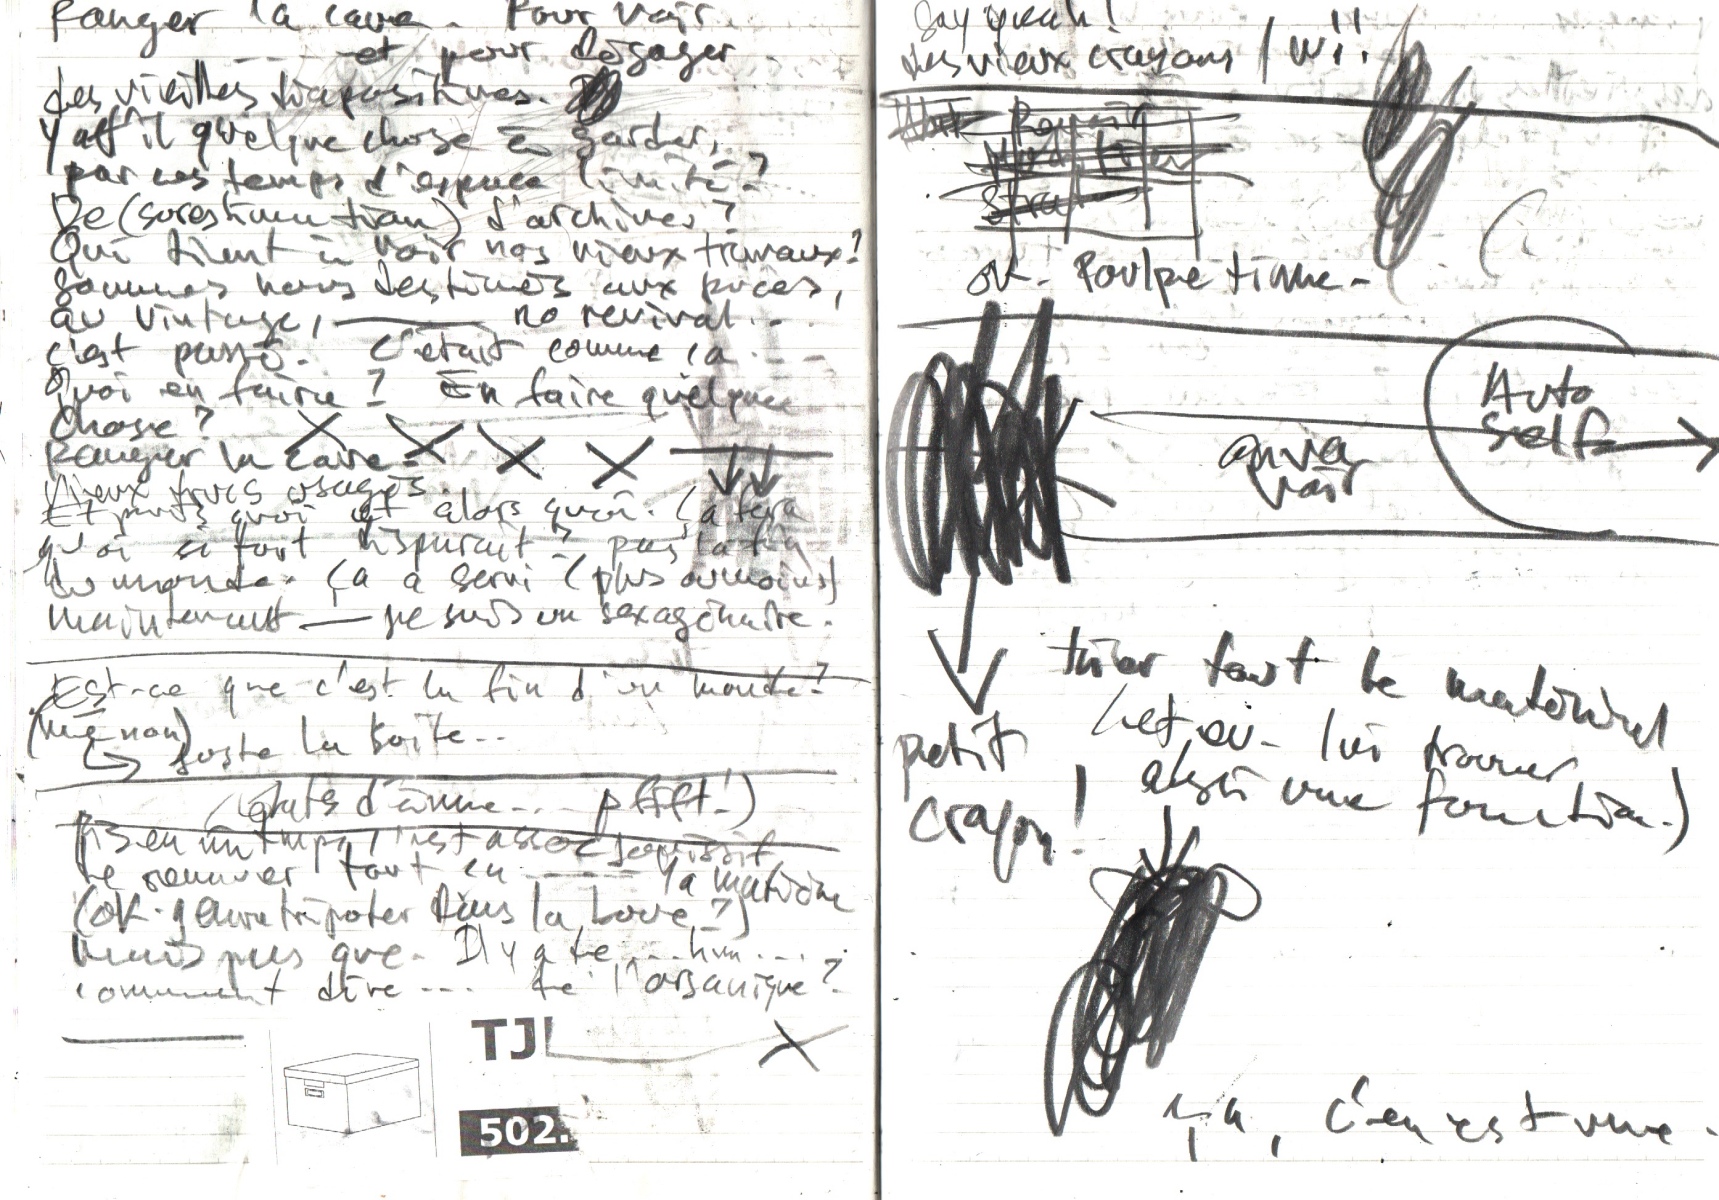 Ranger la cave. Pour voir.
et pour dégager
des vieilles diapositives.
Y a-t-il quelque chose à garder,
par ces temps d'espace limité?
De (surestimation) d'archives?
Qui tient à voir nos vieux travaux?
Sommes nous destinés aux puces,
au vintage, no revival...
c'est passé. C'était comme ça...
Quoi en faire? En faire quelque
chose?
Ranger la cave.
Vieux trucs usagés.
Et puis quoi et alors quoi. Ça fera
quoi si tout disparait? pas la fin
du monde. Ça a servi (plus ou moins)
maintenant — je suis un sexagénaire.
Est-ce que c'est la fin d'un monde?
(mé non)
juste la boîte...
(états d'âme... pffft!)
c'est assez jouissif
de remuer tout en la matière
(OK. genre tripoter dans la boue?)
mais pas que. Il y a de... hum...
comment dire... de l'organique?
TJ
502.
Say yeah!
des vieux crayons / wi!!
OK. Poulpe time.
Auto
Self
on va
voir
petit
crayon!
trier tout le matériel
(et ou lui trouver
une fonction.)
ça, c'en est une.